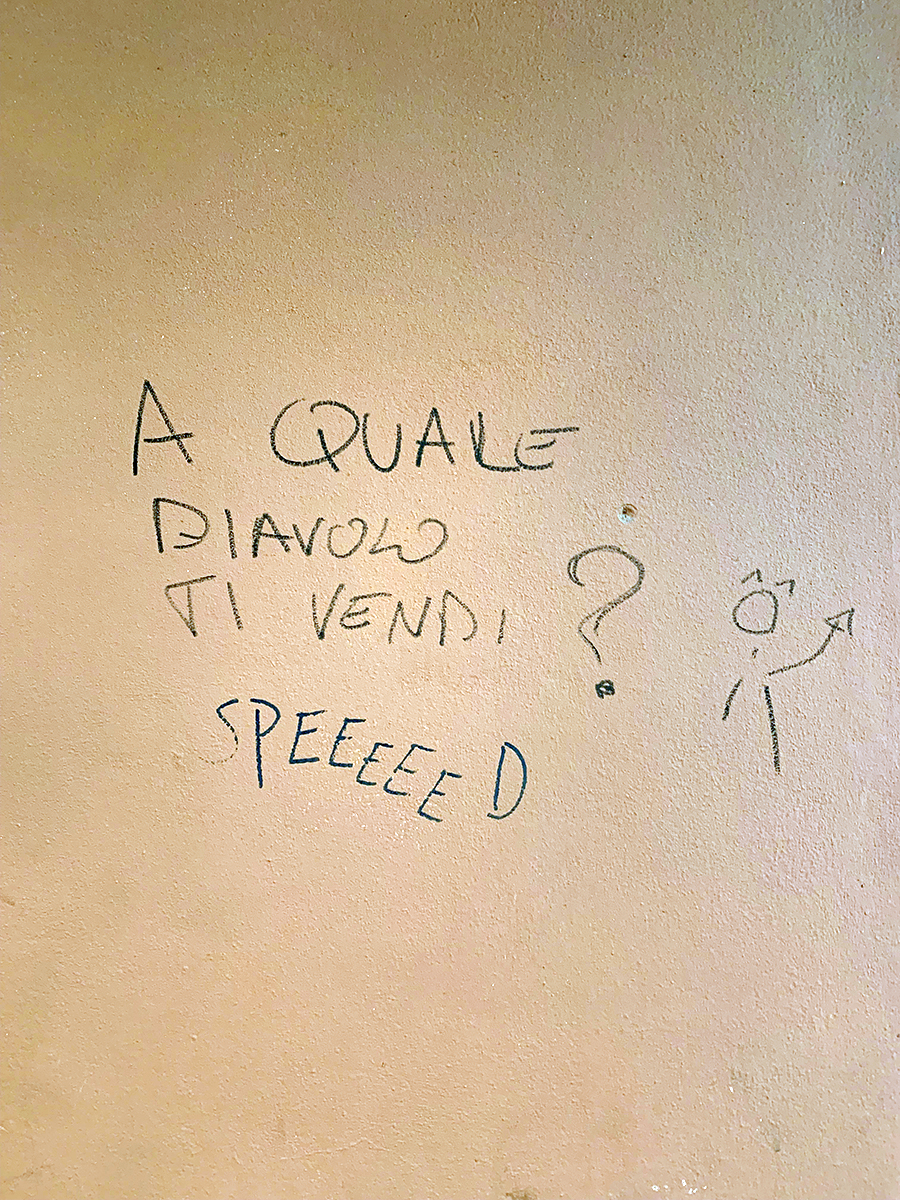 A QUALE
DIAVOLO
TI VENDI ?
SPEEEEED